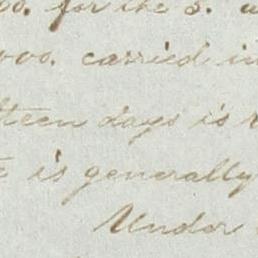 00. for the 3.
000. carried in
teen days is
is generally
Under